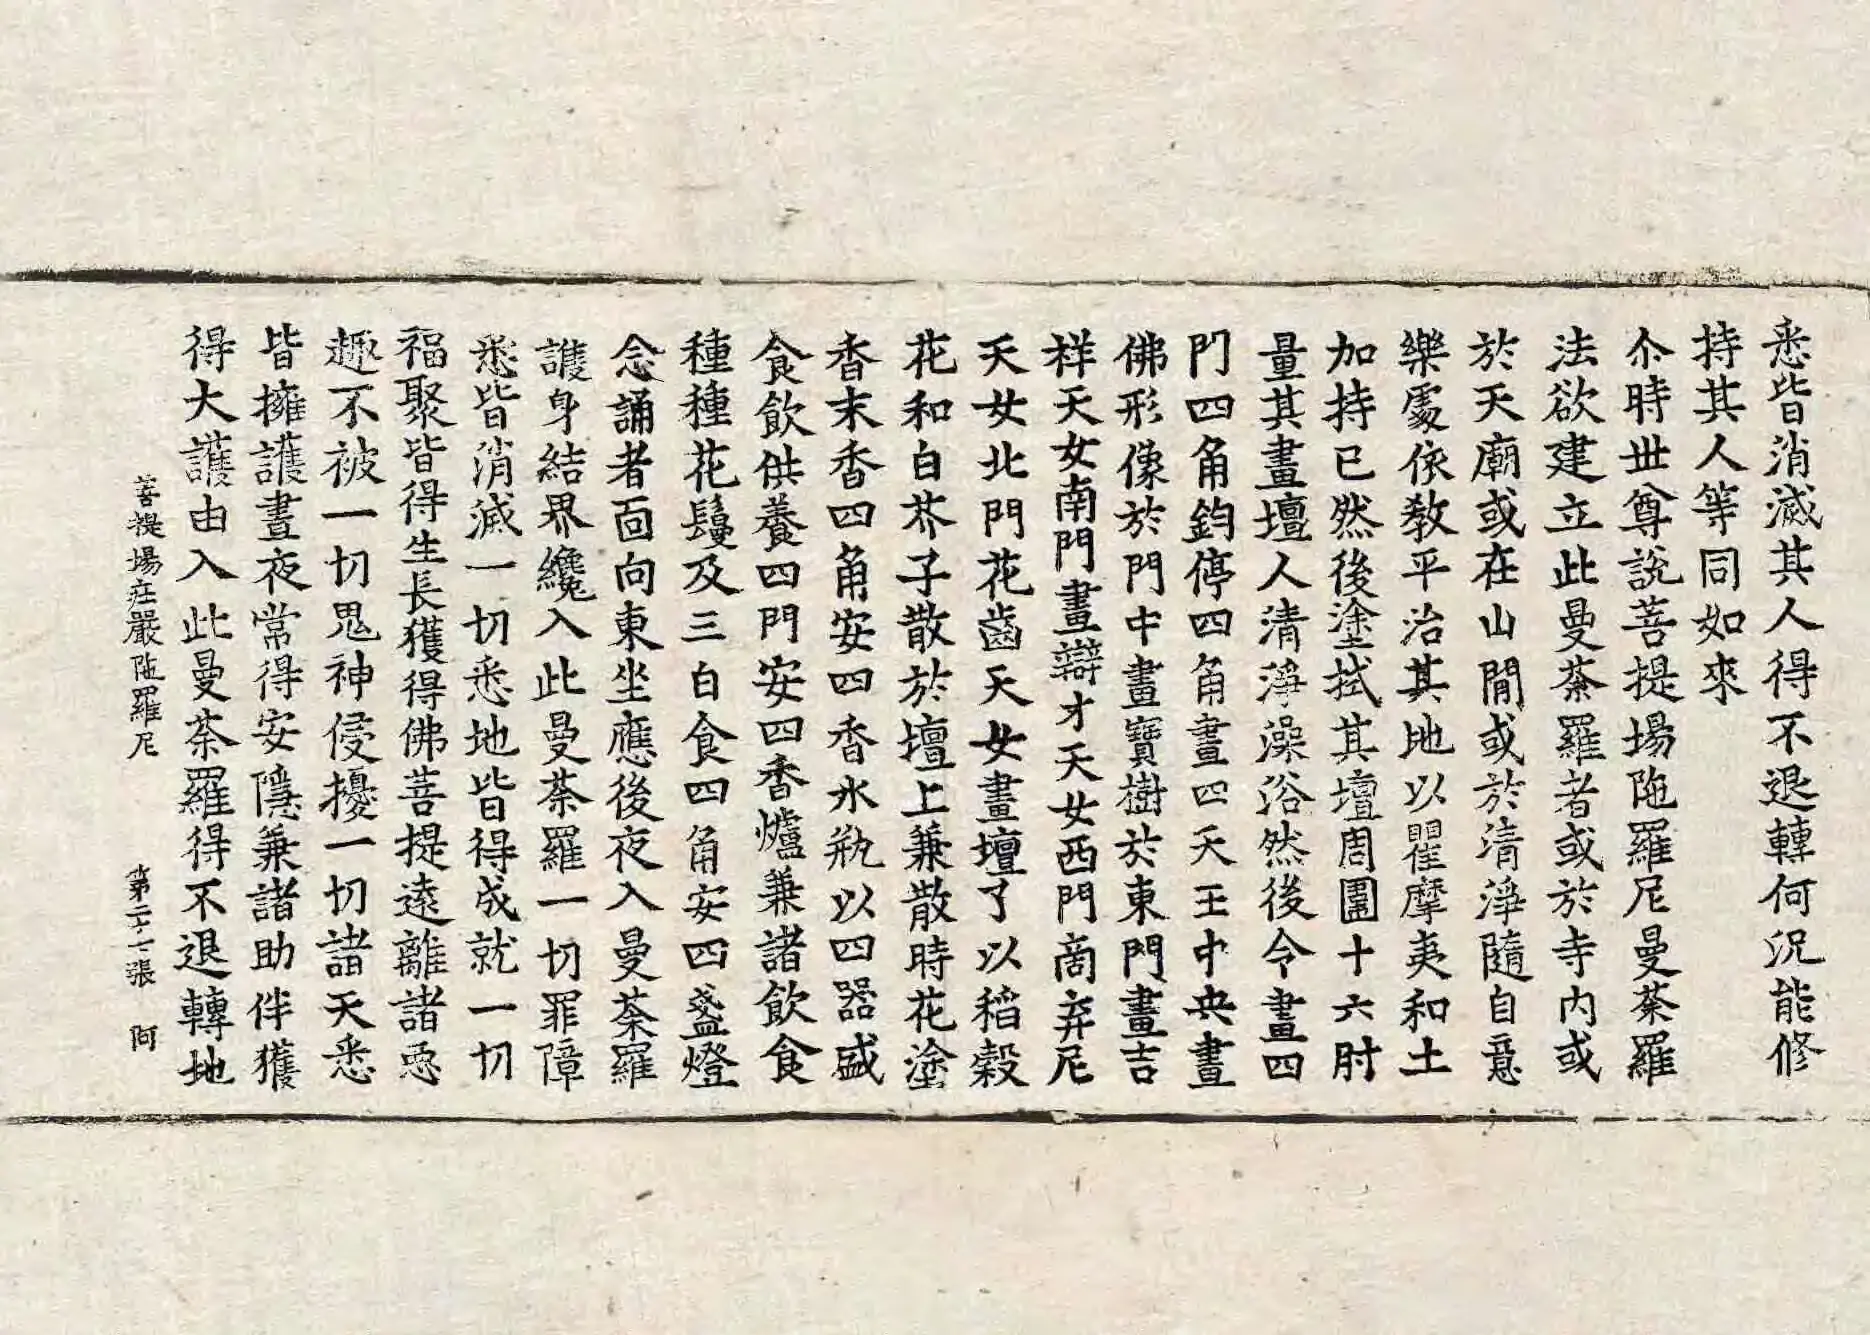 悉皆消滅其人得不退轉何況能修
持其人等同如來
尒時世尊說菩提場陁羅尼曼荼羅
法欲建立此曼荼羅者或於寺內或
於天廟或在山閒或於清淨隨自意
樂處依教平治其地以瞿摩夷和土
加持已然後塗拭其壇周圍十六肘
量其畫壇人清淨澡浴然後令畫四
門四角鈞停四角畫四天王中央畫
佛形像於門中畫寶樹於東門畫吉
祥天女南門畫辯才天女西門商弃尼
天女北門花齒天女畫壇了以稻穀
花和白芥子散於壇上兼散時花塗
香末香四角安四香水瓶以四器盛
食飲供養四門安四香爐兼諸飲食
種種花鬘及三白食四角安四盞燈
念誦者面向東坐應後夜入曼荼羅
護身結界纔入此曼荼羅一切罪障
悉皆消滅一切悉地皆得成就一切
福聚皆得生長獲得佛菩提遠離諸惡
趣不被一切鬼神侵擾一切諸天悉
皆擁護晝夜常得安隱兼諸助伴獲
得大護由入此曼荼羅得不退轉地
菩提場莊嚴陁羅尼 第二十一張 阿